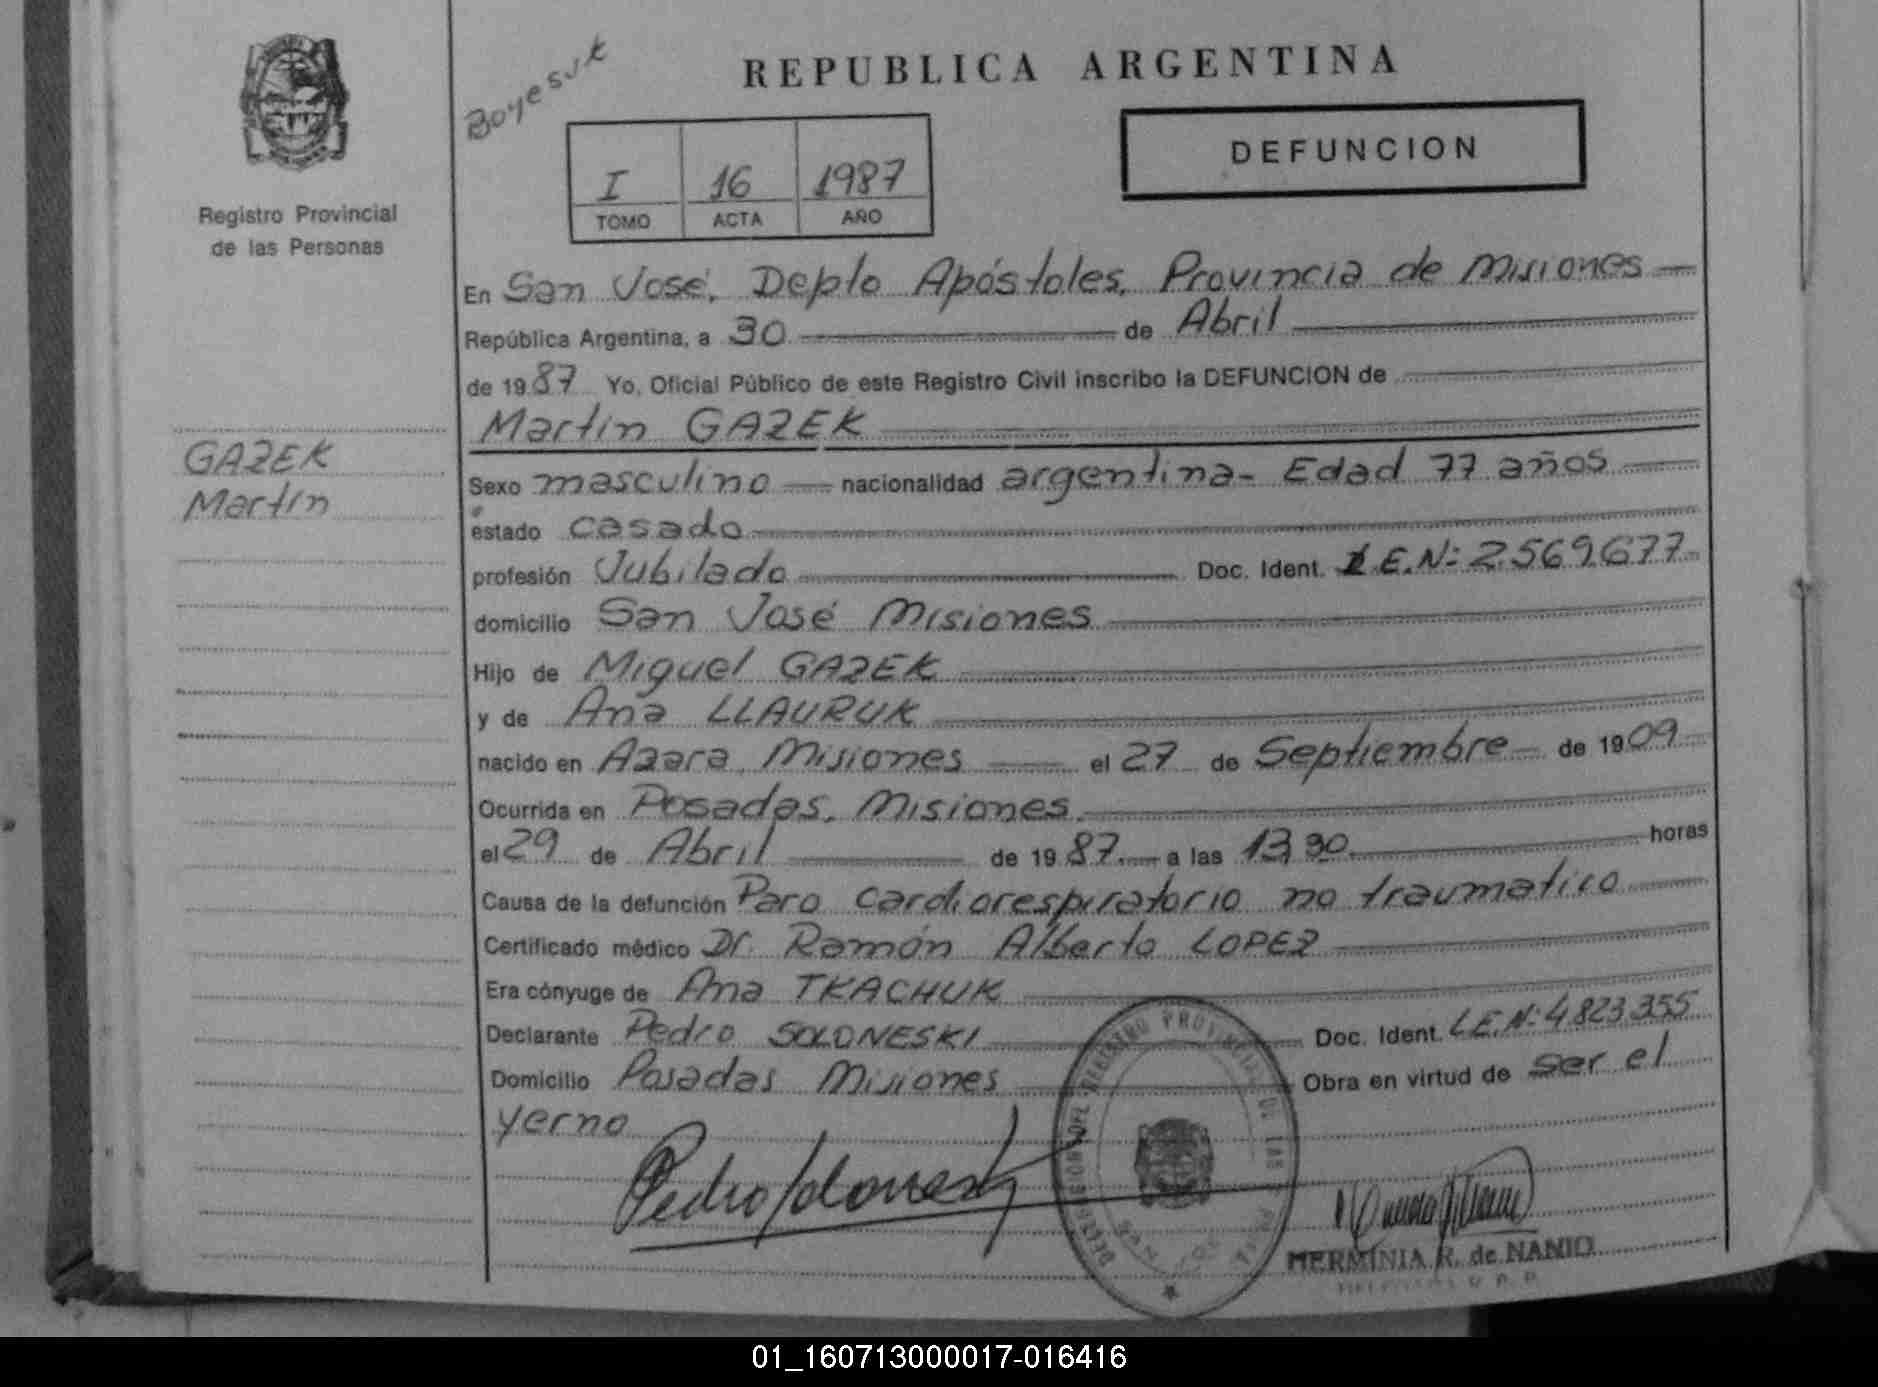 Boyesuk
REPUBLICA ARGENTINA
DEFUNCION
I 16 1987
TOMO ACTA AÑO
Registro Provincial
de las Personas
GAZEK
Martín
En San José, Depto Apóstoles, Provincia de Misiones
República Argentina, a 30 de Abril
de 1987 Yo, Oficial Público de este Registro Civil inscribo la DEFUNCION de
Martín GAZEK
Sexo masculino nacionalidad argentina- Edad 77 años
estado casado
profesión Jubilado Doc. Ident. L.E.Nº 2.569.677
domicilio San José Misiones
Hijo de Miguel GAZEK
y de Ana LLAURUK
nacido en Azara, Misiones el 27 de Septiembre de 1909
Ocurrida en Posadas, Misiones.
el 29 de Abril de 1987. a las 13,30 horas
Causa de la defunción Paro cardiorespiratorio no traumatico
Certificado médico Dr. Ramón Alberto LOPEZ
Era cónyuge de Ana TKACHUK
Declarante Pedro SOLONESKI Doc. Ident. L.E.Nº 4.823.355
Domicilio Posadas Misiones Obra en virtud de ser el
yerno
Pedro Soloneski
DELEGACION DEL REGISTRO PROVINCIAL DE LAS
SAN JOSE
HERMINIA R. de NANIO
01_160713000017-016416